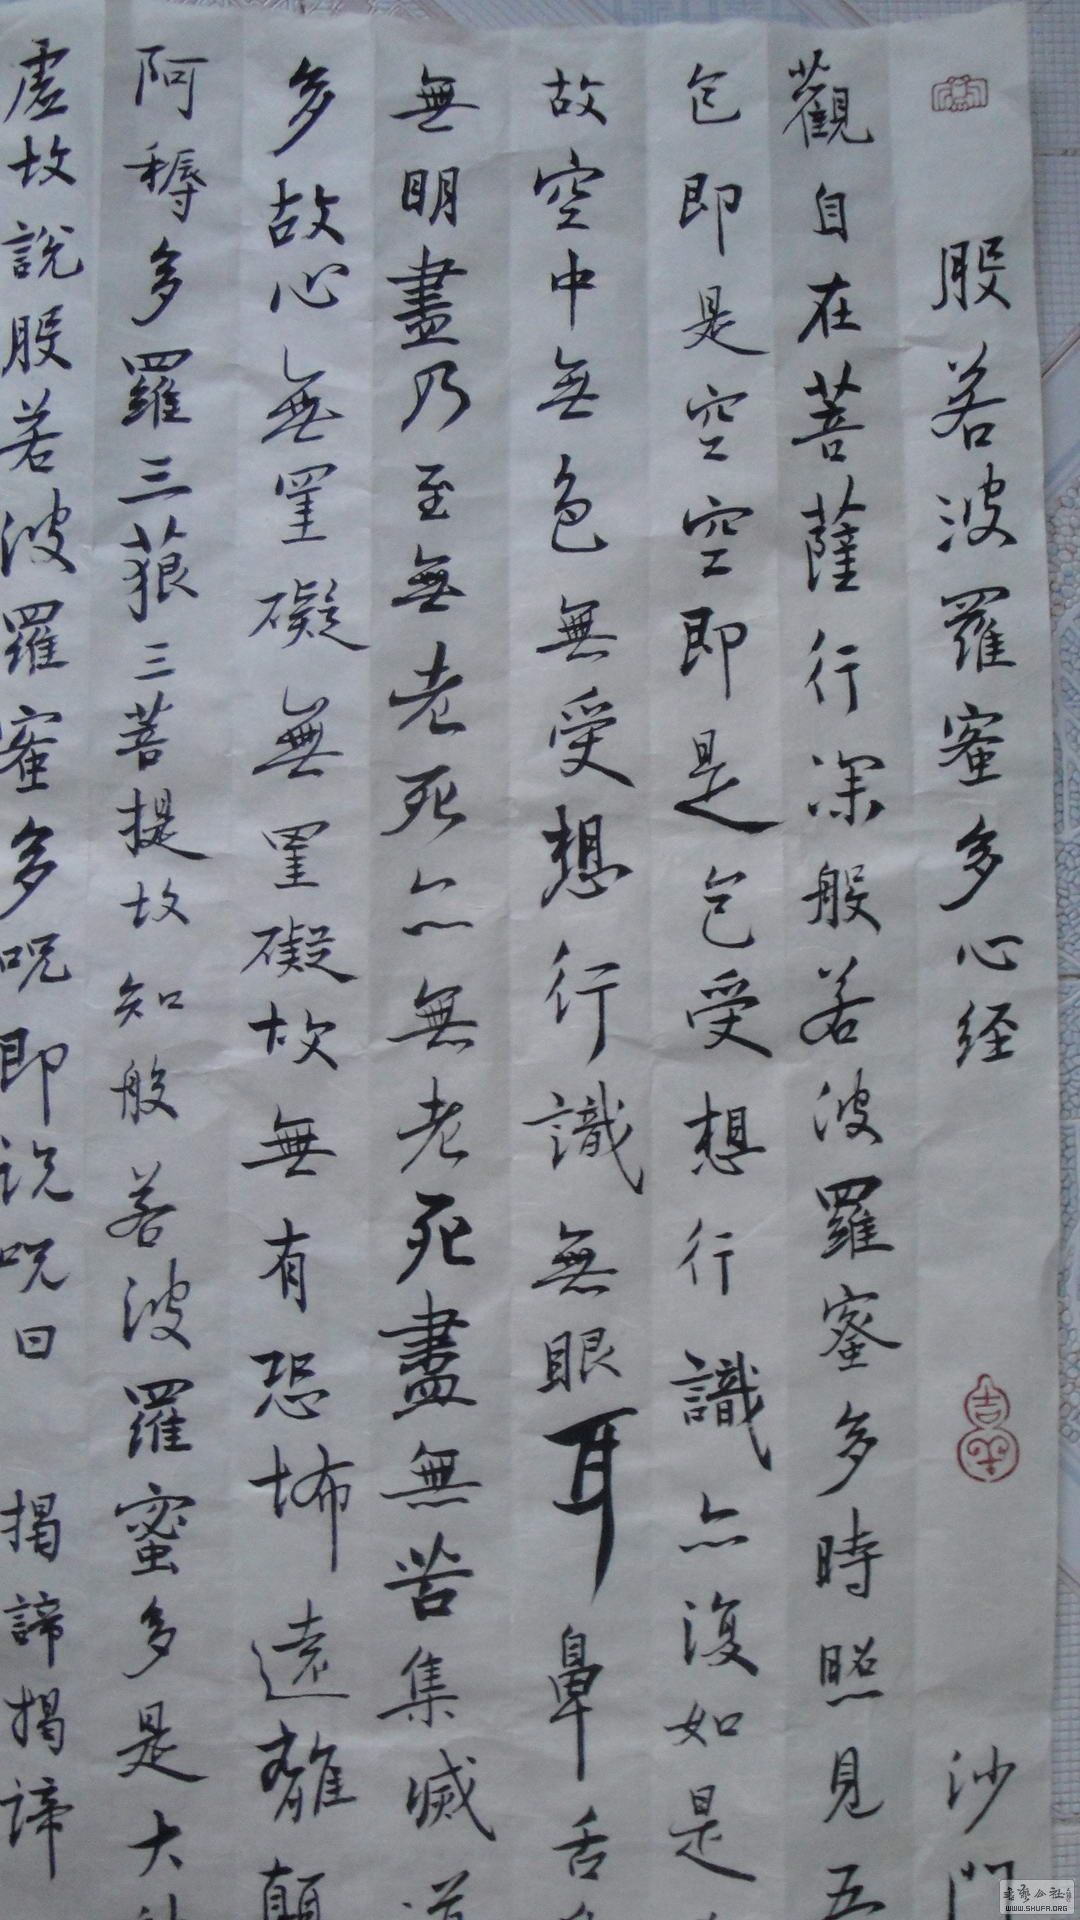 般若波羅蜜多心经 沙門
觀自在菩薩行深般若波羅蜜多時照見五
色即是空空即是色受想行識亦復如是
故空中無色無受想行識無眼耳鼻舌
無明盡乃至無老死亦無老死盡無苦集滅道
多故心無罣礙無罣礙故無有恐怖遠離顛
阿耨多羅三藐三菩提故知般若波羅蜜多是大
虛故說般若波羅蜜多呪即説呪曰 揭諦揭諦
吉
WWW.SHUFA.ORG